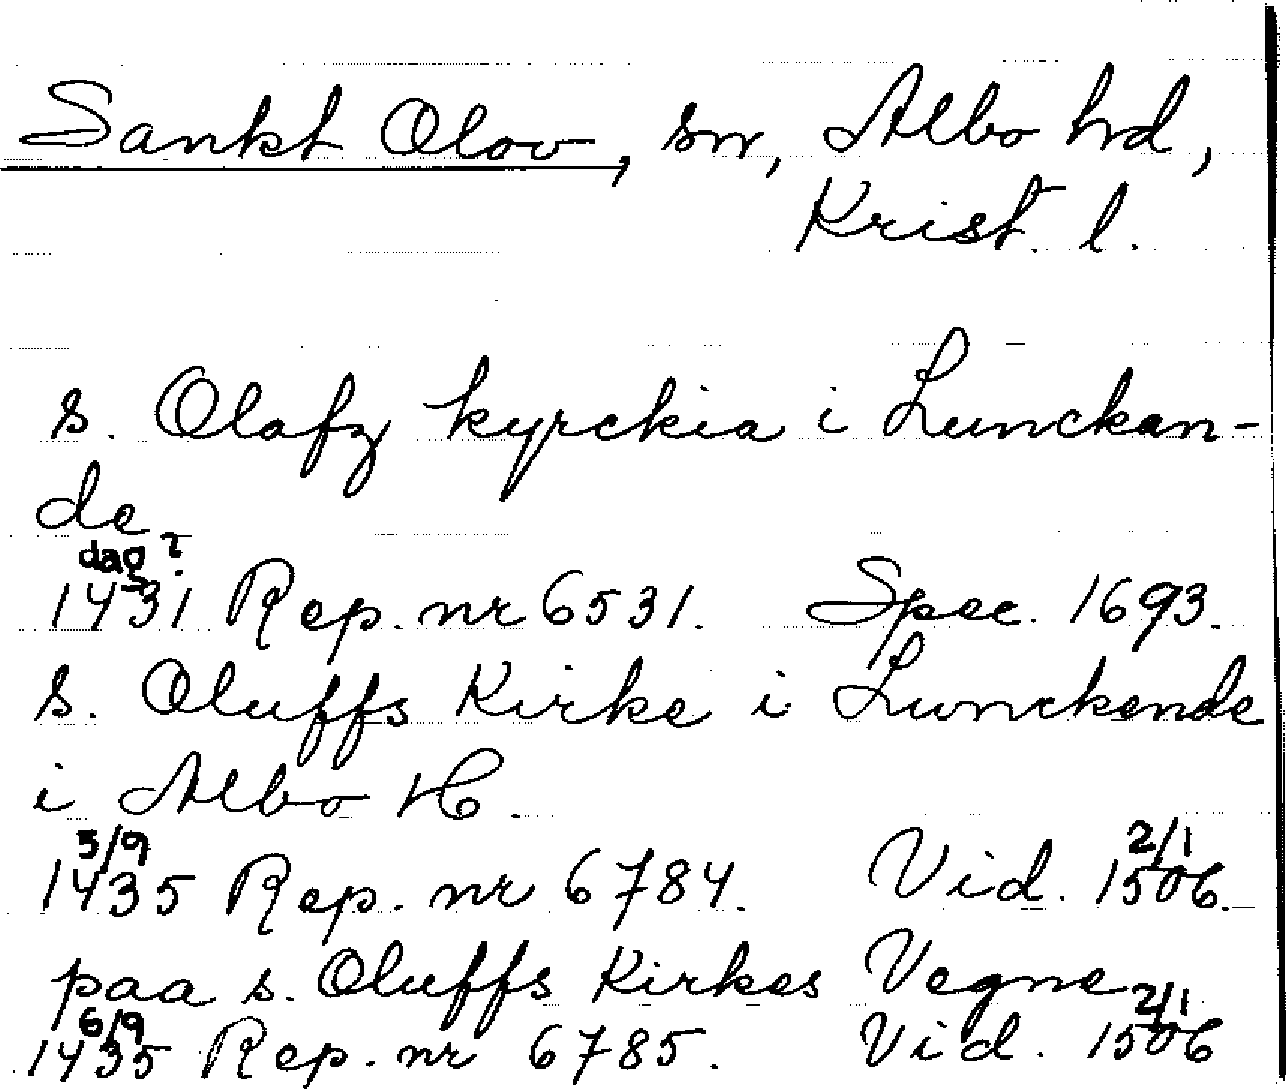 Sankt Olov, sn, Albo hrd,
Krist. l.
s. Olafz kyrckia i Lunckan-
de
dag?
1431 Rep. nr 6531. Spec. 1693.
s. Oluffs Kirke i Lunckende
i Albo H.
5/9 2/1
1435 Rep. nr 6784. Vid. 1506.
paa s. Oluffs Kirkes Vegne
6/9 2/1
1435 Rep. nr 6785. Vid. 1506